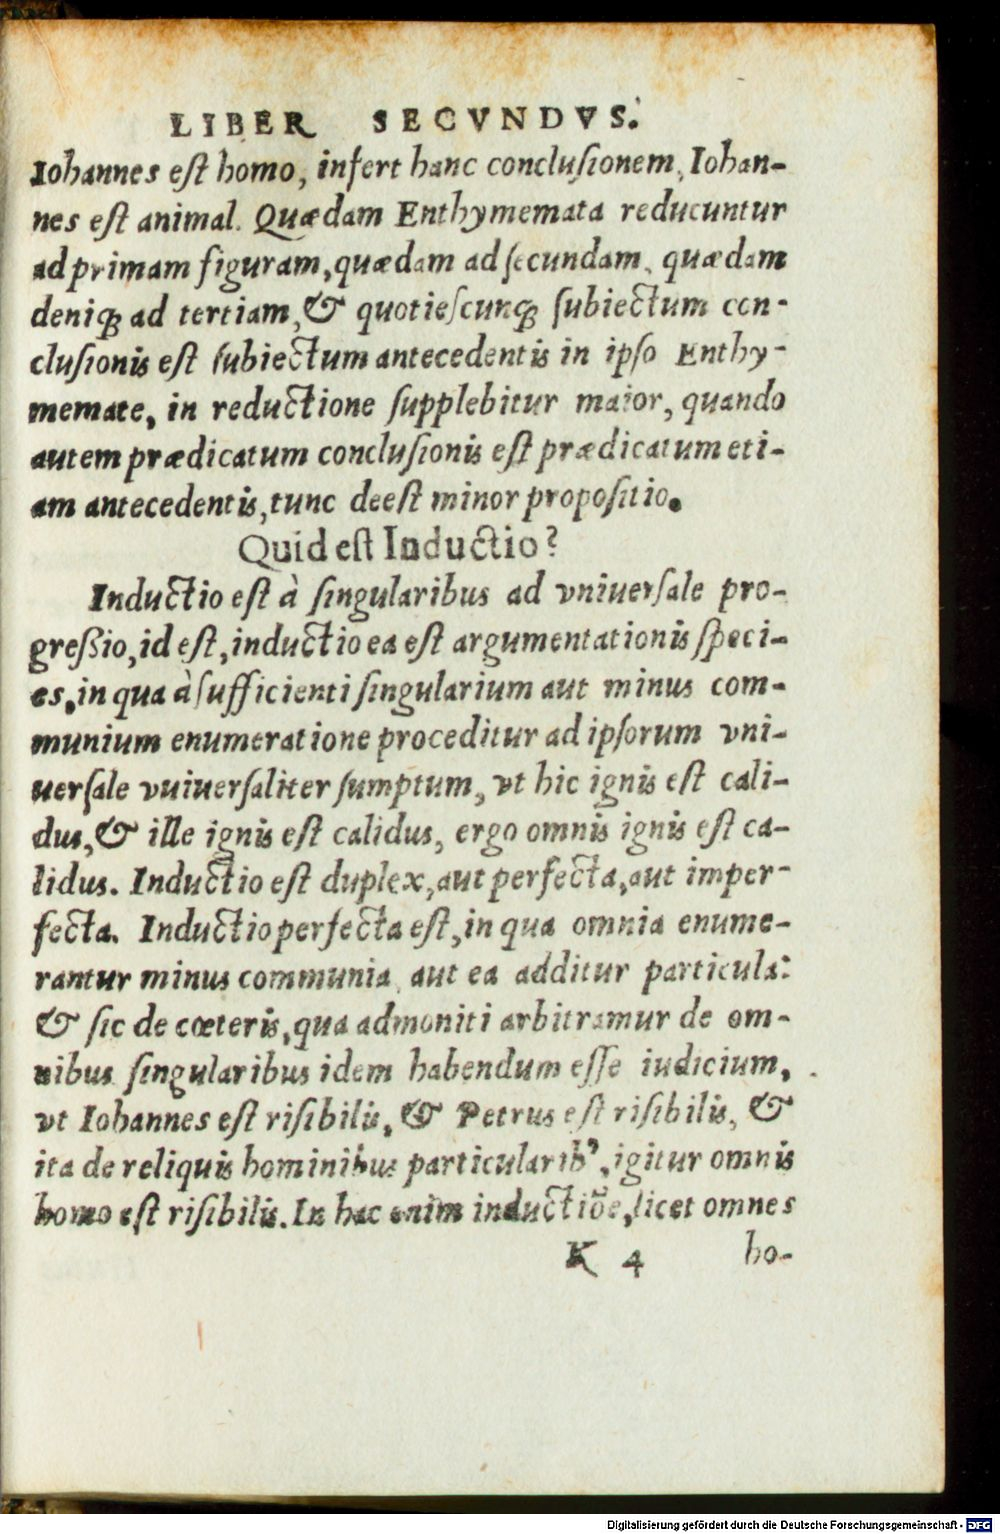 LIBER SECVNDVS.
Iohannes est homo, infert hanc conclusionem, Iohan-
nes est animal. Quædam Enthymemata reducuntur
ad primam figuram, quædam ad secundam, quædam
deniqꝫ ad tertiam, & quotiescunqꝫ subiectum con-
clusionis est subiectum antecedentis in ipso Enthy-
memate, in reductione supplebitur maior, quando
autem prædicatum conclusionis est prædicatum eti-
am antecedentis, tunc deest minor propositio.
Quid est Inductio?
Inductio est à singularibus ad vniuersale pro-
greßio, id est, inductio ea est argumentationis speci-
es, in qua à sufficienti singularium aut minus com-
munium enumeratione proceditur ad ipsorum vni-
uersale vuiuersaliter sumptum, vt hic ignis est cali-
dus, & ille ignis est calidus, ergo omnis ignis est ca-
lidus. Inductio est duplex, aut perfecta, aut imper-
fecta. Inductio perfecta est, in qua omnia enume-
rantur minus communia, aut ea additur particula:
& sic de cœteris, qua admoniti arbitramur de om-
nibus singularibus idem habendum esse iudicium,
vt Iohannes est risibilis, & Petrus est risibilis, &
ita de reliquis hominibus particularib⁹, igitur omnis
homo est risibilis. In hac enim inductiõe, licet omnes
K 4 ho-
Digitalisierung gefördert durch die Deutsche Forschungsgemeinschaft - DFG